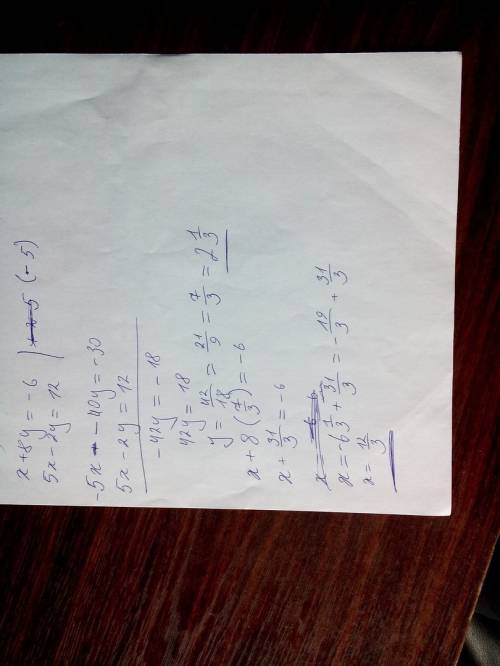 x + 8y = -6 | (-5)
5x - 2y = 12
-5x - 40y = -30
5x - 2y = 12
-42y = -18
42y = 18
y = 42/18 = 21/9 = 7/3 = 2 1/3
x + 8 (7/3) = -6
x + 31/3 = -6
x = -6 1/3 + 31/3 = - 19/3 + 31/3
x = 12/3